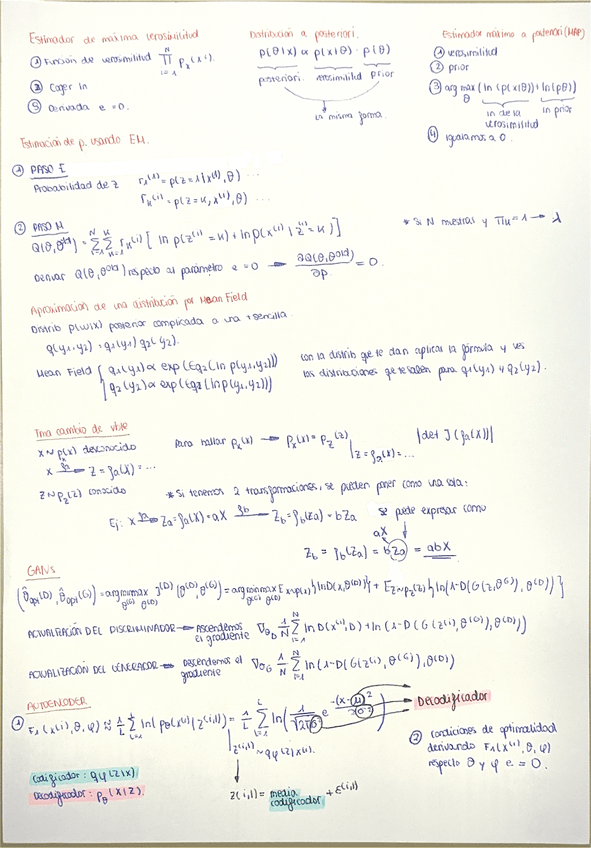 Estimador de máxima verosimilitud
① Función de verosimilitud ∏_{i=1}^{N} p_x(x^{(i)}).
② Coger ln
③ Derivada e = 0.
Distribución a posteriori.
p(θ|x) ∝ p(x|θ) · p(θ)
posteriori. verosimilitud prior
la misma forma.
Estimador máximo a posteriori (MAP)
① verosimilitud
② prior
③ arg max_θ (ln(p(x|θ)) + ln(pθ))
ln de la verosimilitud
ln prior
④ igualamos a 0.
Estimación de p. usando EM.
① PASO E
Probabilidad de z r₁^{(i)} = p(z=1|x^{(i)}, θ) ...
r_K^{(i)} = p(z=K, x^{(i)}, θ) ...
② PASO M
Q(θ, θ^{old}) = ∑_{i=1}^{N} ∑_{k=1}^{K} r_k^{(i)} [ ln p(z^{(i)}=k) + ln p(x^{(i)} | z^{(i)}=k) ]
* Si N muestras y π_k = 1 → λ
Derivar Q(θ, θ^{old}) respecto al parámetro e = 0 → ∂Q(θ, θ^{old})/∂p = 0.
Aproximación de una distribución por Mean Field
Distrib p(w|x) posterior complicada a una + sencilla.
q(y₁, y₂) = q₁(y₁) q₂(y₂).
Mean Field { q₁(y₁) ∝ exp(E_{q₂}(ln p(y₁,y₂)))
q₂(y₂) ∝ exp(E_{q₁}(ln p(y₁,y₂)))
con la distrib que te dan aplicar la fórmula y ves
las distribuciones que te salen para q₁(y₁) y q₂(y₂).
Tma cambio de vble
x ~ p_x(x) desconocido
x → z = f_a(x) = ...
z ~ p_z(z) conocido
Para hallar p_x(x) → p_x(x) = p_z(z)|_{z = f_a(x) = ...} |det J(f_a(x))|
* Si tenemos 2 transformaciones, se pueden poner como una sola:
Ej: x → z_a = f_a(x) = ax → z_b = f_b(z_a) = bz_a
se puede expresar como
ax
z_b = f_b(z_a) = bz_a = abx
GANs
(θ̂_{opt}(D), θ̂_{opt}(G)) = arg minmax_{θ(G) θ(D)} J^{(D)}(θ^{(D)}, θ^{(G)}) = arg minmax_{θ(G) θ(D)} E_{x~p(x)} {ln D(x, θ^{(D)})} + E_{z~p_z(z)} {ln(1-D(G(z, θ^{(G)}), θ^{(D)}))}
ACTUALIZACIÓN DEL DISCRIMINADOR → Ascendemos el gradiente ∇_{θ_D} 1/N ∑_{i=1}^{N} ln D(x^{(i)}, D) + ln(1-D(G(z^{(i)}, θ^{(G)}), θ^{(D)}))
ACTUALIZACIÓN DEL GENERADOR → Descendemos el gradiente ∇_{θ_G} 1/N ∑_{i=1}^{N} ln(1-D(G(z^{(i)}, θ^{(G)}), θ^{(D)})
AUTOENCODER
① F₁(x^{(i)}, θ, φ) ≈ 1/L ∑_{l=1}^{L} ln(p_θ(x^{(i)}|z^{(i,l)})) = 1/L ∑_{l=1}^{L} ln(1/√(2πσ²) e^{-(x-μ)²/2σ²})
Decodificador
z^{(i,l)} ~ q_φ(z|x^{(i)}).
z(i,l) = media codificador + ε^{(i,l)}
② condiciones de optimalidad
derivando F₁(x^{(i)}, θ, φ)
respecto θ y φ e = 0.
Codificador: q_φ(z|x)
Decodificador: p_θ(x|z).